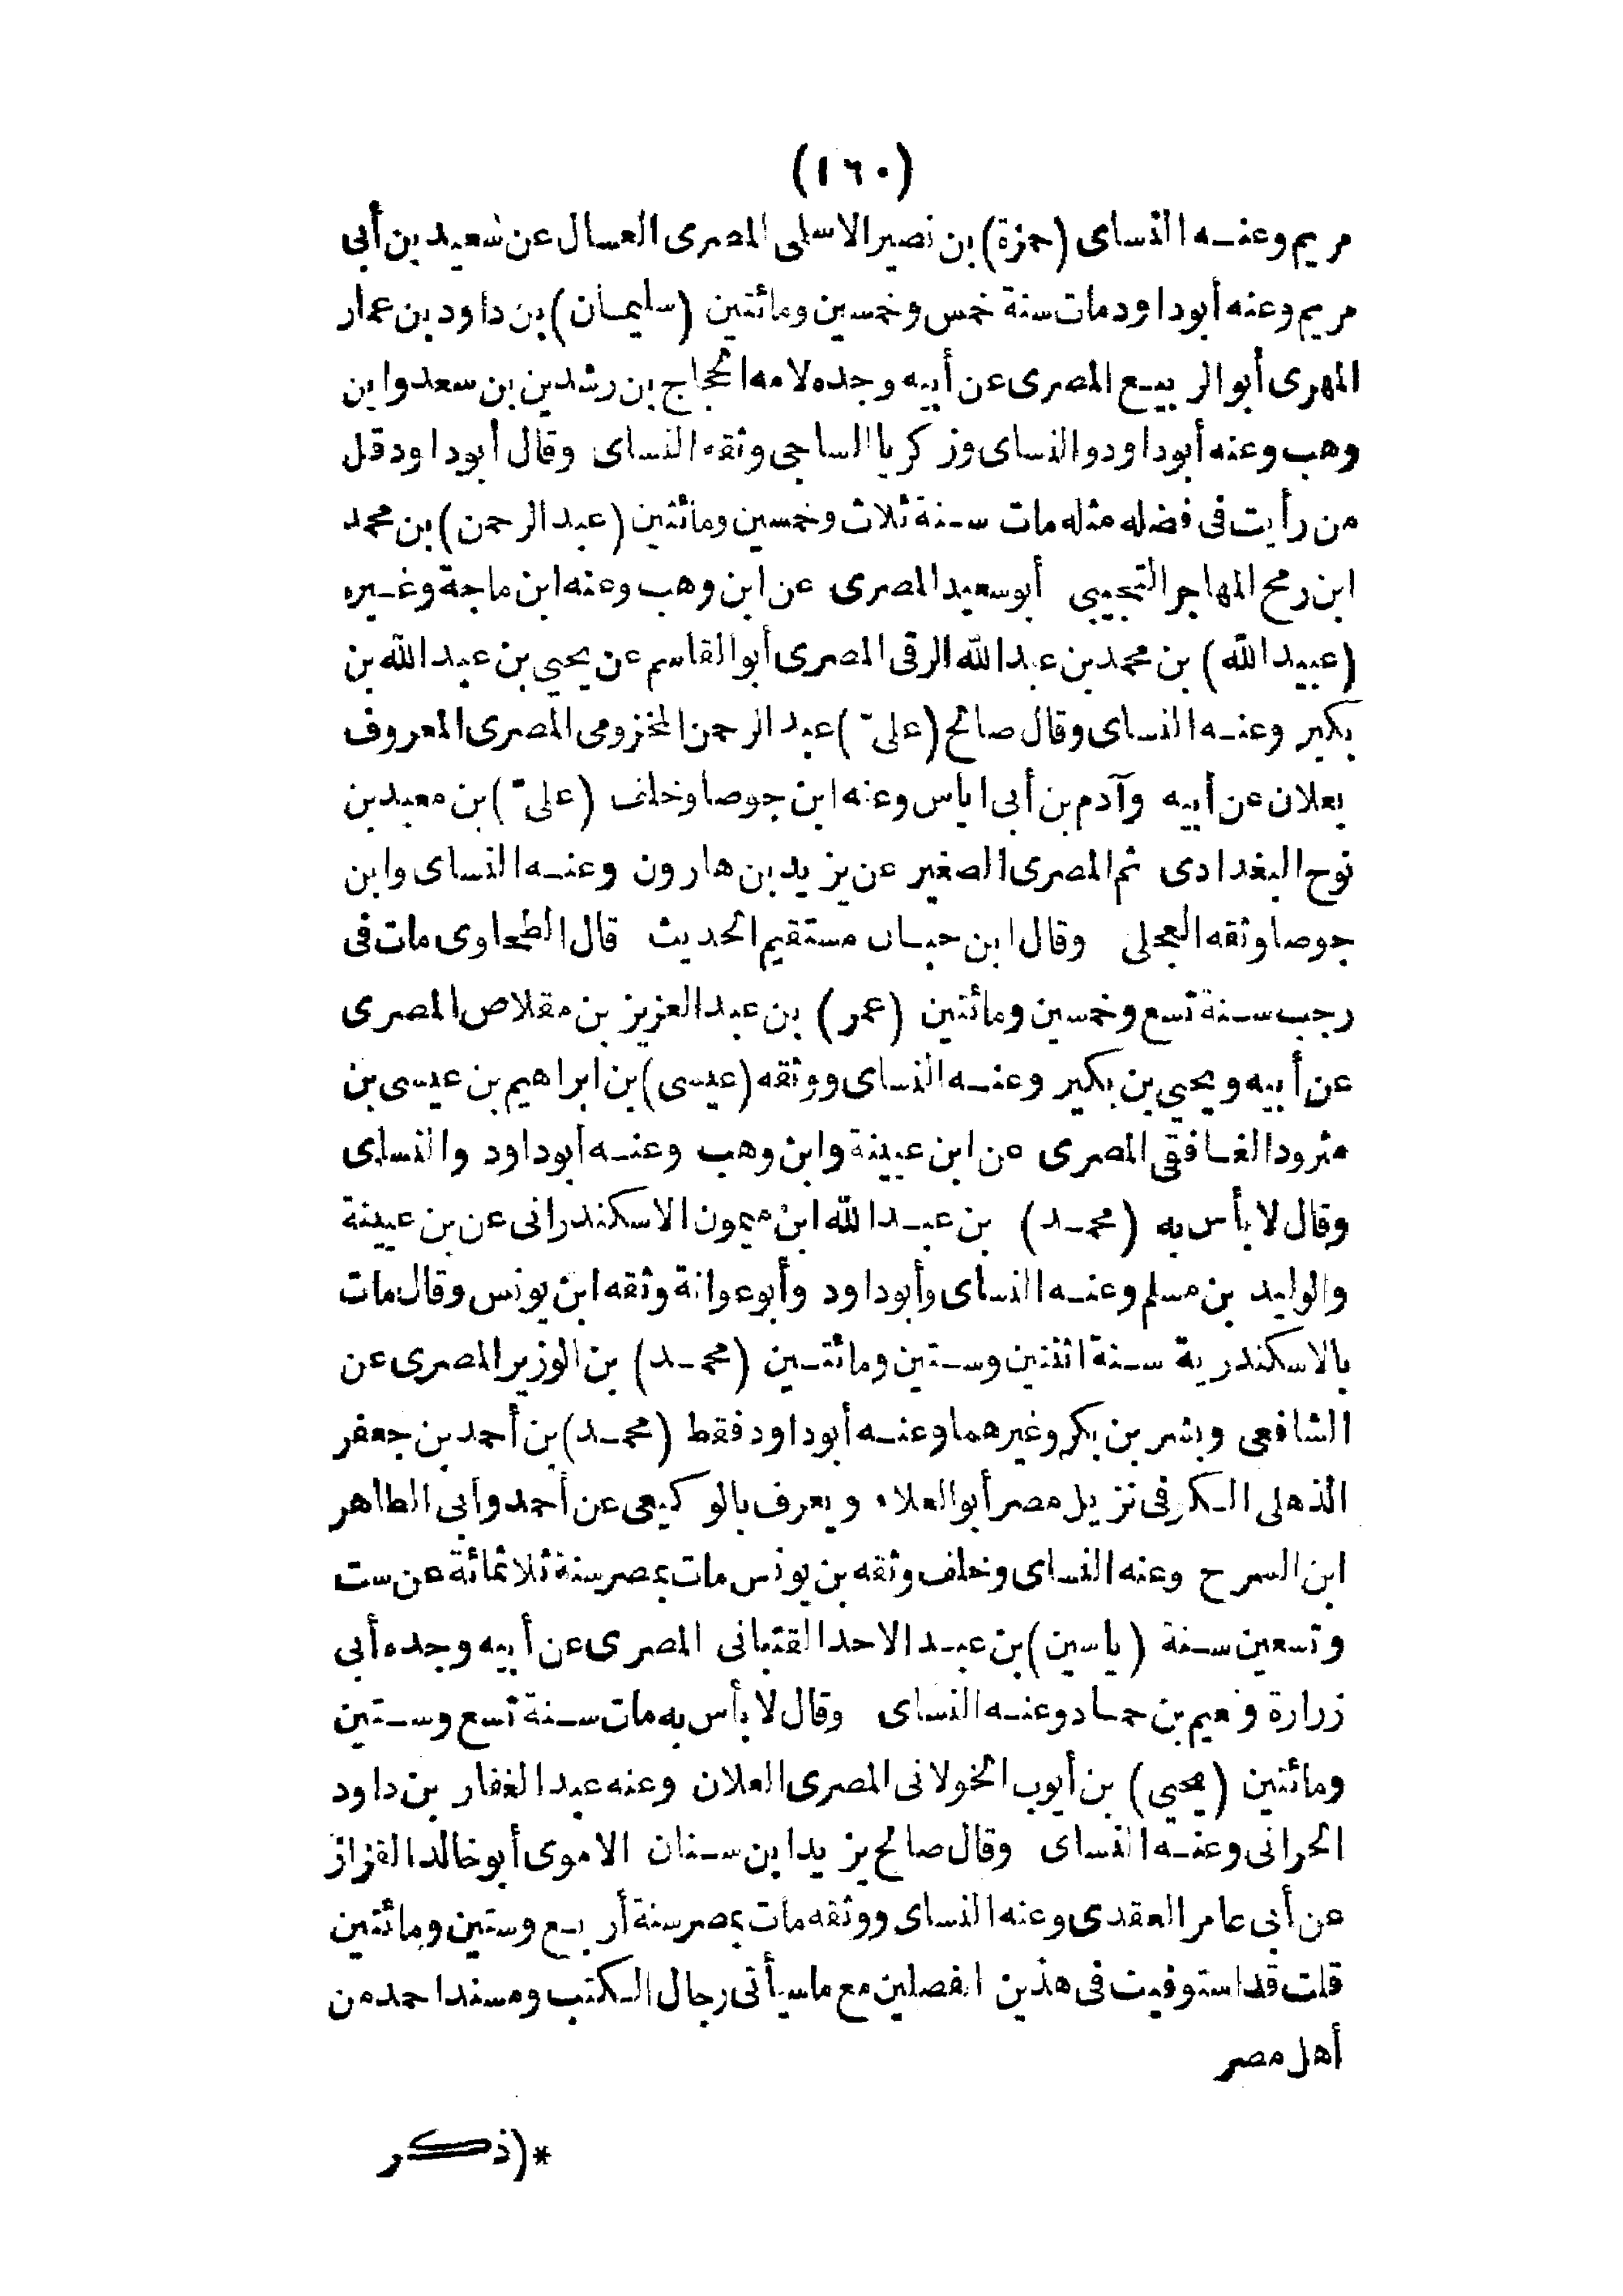 (١٦٠)
مريم وعنه النساى (حمزة) بن نصير الاسلى المصرى العسال عن سعيد بن أبى
مريم وعنه أبو داود مات سنة خمس وخمسين ومائتين (سليمان) بن داود بن عمار
المهرى أبو الربيع المصرى عن أبيه وجده لامه الحجاج بن رشدين بن سعد وابن
وهب وعنه أبو داود والنساى وزكريا الساجى وثقه النساى وقال أبو داود قل
من رأيت فى فضله مثله مات سنة ثلاث وخمسين ومائتين (عبد الرحمن) بن محمد
ابن رمح المهاجر التجيبى أبو سعيد المصرى عن ابن وهب وعنه ابن ماجة وغيره
(عبيد الله) بن محمد بن عبد الله الرقى المصرى أبو القاسم عن يحيي بن عبد الله بن
بكير وعنه النساى وقال صالح (علىّ) عبد الرحمن المخزومى المصرى المعروف
بعلان عن أبيه وآدم بن أبى اياس وعنه ابن جوصا وخلف (علىّ) بن معبد بن
نوح البغدادى ثم المصرى الصغير عن يزيد بن هارون وعنه النساى وابن
جوصا وثقه العجلى وقال ابن حبان مستقيم الحديث قال الطحاوى مات فى
رجب سنة تسع وخمسين ومائتين (عمر) بن عبد العزيز بن مقلاص المصرى
عن أبيه ويحيي بن بكير وعنه النساى ووثقه (عيسى) بن ابراهيم بن عيسى بن
مثرود الغافقى المصرى عن ابن عيينة وابن وهب وعنه أبو داود والنساى
وقال لا بأس به (محمد) بن عبد الله ابن ميمون الاسكندرانى عن بن عيينة
والوليد بن مسلم وعنه النساى وأبو داود وأبو عوانة وثقه ابن يونس وقال مات
بالاسكندرية سنة اثنين وستين ومائتين (محمد) بن الوزير المصرى عن
الشافعى وبشر بن بكر وغيرهما وعنه أبو داود فقط (محمد) بن أحمد بن جعفر
الذهلى الكرفى نزيل مصر أبو العلاء ويعرف بالوكيعى عن أحمد وأبى الطاهر
ابن السرح وعنه النساى وخلف وثقه بن يونس مات بمصر سنة ثلاثمائة عن ست
وتسعين سنة (ياسين) بن عبد الاحد القتبانى المصرى عن أبيه وجده أبى
زرارة ونعيم بن حماد وعنه النساى وقال لا بأس به مات سنة تسع وستين
ومائتين (يحيي) بن أيوب الخولانى المصرى العلان وعنه عبد الغفار بن داود
الحرانى وعنه النساى وقال صالح يزيد ابن سنان الاموى أبو خالد القزاز
عن أبى عامر العقدى وعنه النساى ووثقه مات بمصر سنة أربع وستين ومائتين
قلت قد استوفيت فى هذين الفصلين مع ماسيأتى رجال الكتب ومسند احمد من
أهل مصر
*(ذكر